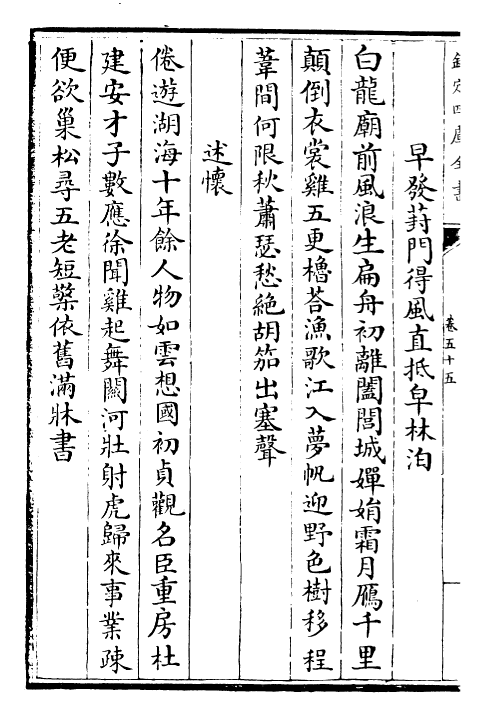 欽定四庫全書
卷五十五
早發葑門得風直抵皁林泊
白龍廟前風浪生扁舟初離闔閭城嬋娟霜月鴈千里
顛倒衣裳雞五更櫓荅漁歌江入夢帆迎野色樹移程
葦間何限秋蕭瑟愁絶胡笳出塞聲
述懷
倦遊湖海十年餘人物如雲想國初貞觀名臣重房杜
建安才子數應徐聞雞起舞關河壮射虎歸來事業疎
便欲巢松尋五老短檠依舊滿牀書